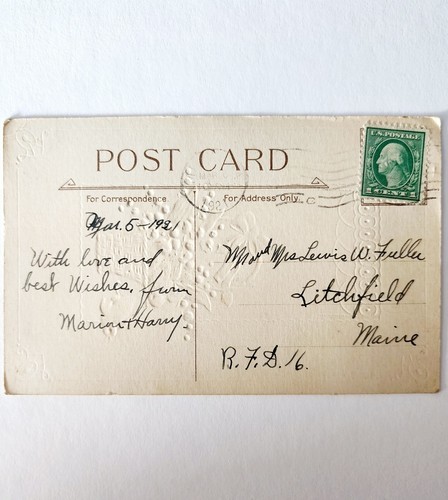 U.S. POSTAGE
1 CENT 1
POST CARD
For Correspondence.
For Address Only.
Mar. 5-1921
With love and
best Wishes, from
Marion + Harry.
Mr and Mrs Lewis W. Fuller
Litchfield
Maine
R.F.D. 16.